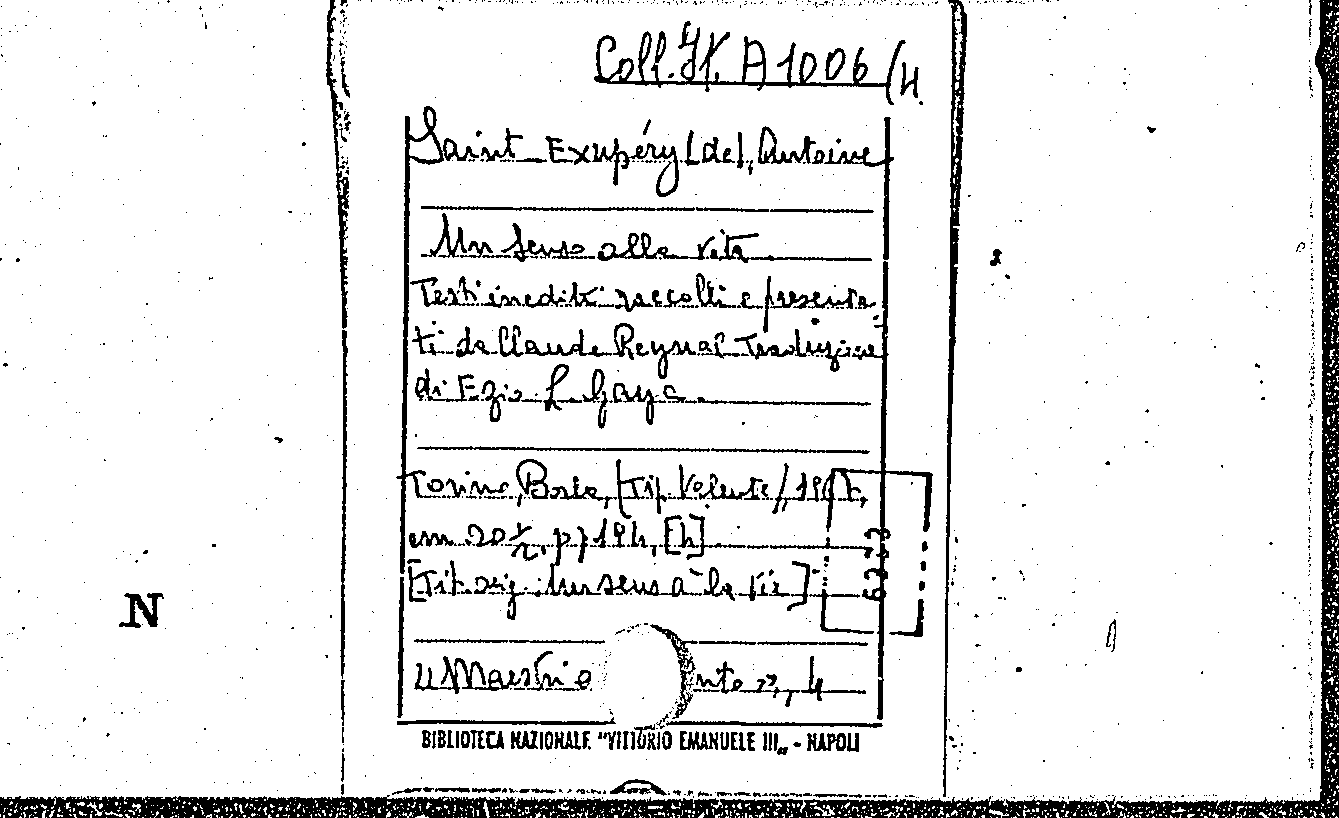 Coll. It. A 1006/4.
Saint-Exupéry (de), Antoine
Un senso alla vita.
Testi inediti raccolti e presenta
ti da Claude Reynal Traduzione
di Ezio L. Gaya.
Torino, Borla, [Tip. Valente], 1967,
cm. 20 ½, pp 194, [4].
[Tit. orig.: Un sens à la vie]
"Maestri o nto", 4
BIBLIOTECA NAZIONALE "VITTORIO EMANUELE III" - NAPOLI
N